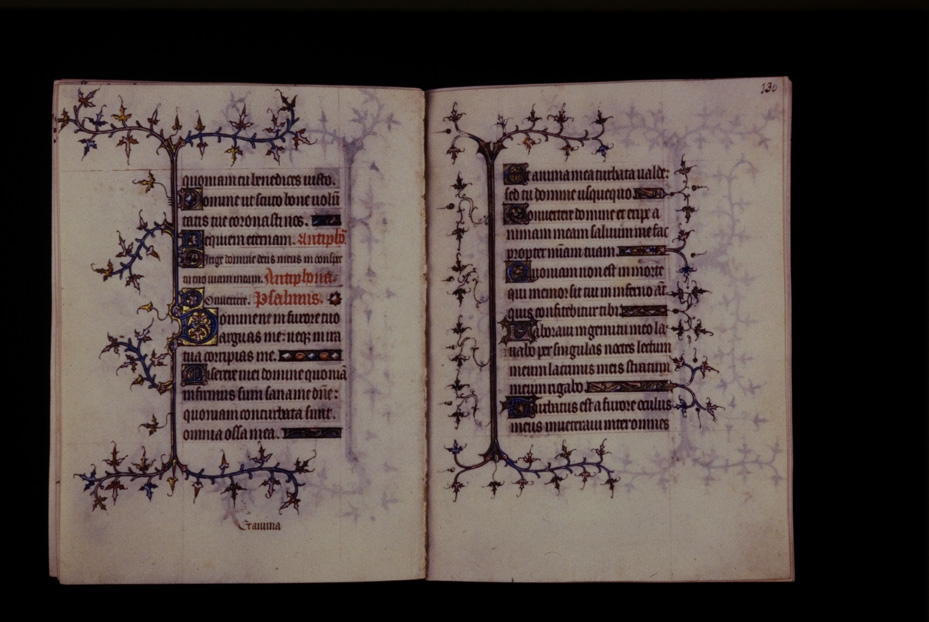 quoniam tu benedices iusto.
Domine ut scuto bone uolū
tatis tue coronasti nos.
Requiem eternam. Antiph̄.
Dirige domine deus meus in conspec
tu tuo uiam meam. Antiphona.
Conuertere. Psalmus.
Domine ne in furore tuo
arguas me: neq; in ira
tua corripias me.
Miserere mei domine quoniā
infirmus sum sana me dn̄e:
quoniam conturbata sunt
omnia ossa mea.
Et anima
130
Et anima mea turbata ualde:
sed tu domine usquequo.
Conuertere domine et eripe a
nimam meam saluum me fac
propter mīam tuam.
Quoniam non est in morte
qui memor sit tui in inferno aūt
quis confitebitur tibi.
Laboraui in gemitu meo la
uabo per singulas noctes lectum
meum lacrimis meis stratum
meum rigabo.
Turbatus est a furore oculus
meus inueteraui inter omnes